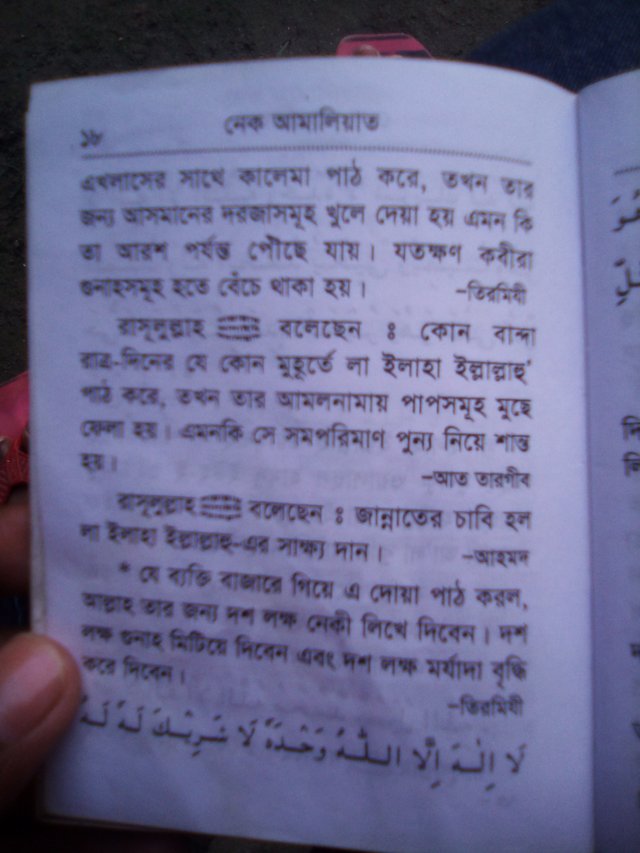 ১৮
নেক আমালিয়াত
এখলাসের সাথে কালেমা পাঠ করে, তখন তার
জন্য আসমানের দরজাসমূহ খুলে দেয়া হয় এমন কি
তা আরশ পর্যন্ত পৌছে যায়। যতক্ষণ কবীরা
গুনাহসমূহ হতে বেঁচে থাকা হয়। –তিরমিযী
রাসূলুল্লাহ বলেছেন ঃ কোন বান্দা
রাত্র-দিনের যে কোন মুহূর্তে লা ইলাহা ইল্লাল্লাহু'
পাঠ করে, তখন তার আমলনামায় পাপসমূহ মুছে
ফেলা হয়। এমনকি সে সমপরিমাণ পুন্য নিয়ে শান্ত
হয়। –আত তারগীব
রাসূলুল্লাহ বলেছেন ঃ জান্নাতের চাবি হল
লা ইলাহা ইল্লাল্লাহু-এর সাক্ষ্য দান। –আহমদ
* যে ব্যক্তি বাজারে গিয়ে এ দোয়া পাঠ করল,
আল্লাহ তার জন্য দশ লক্ষ নেকী লিখে দিবেন। দশ
লক্ষ গুনাহ মিটিয়ে দিবেন এবং দশ লক্ষ মর্যাদা বৃদ্ধি
করে দিবেন। –তিরমিযী
لَا اِلٰهَ اِلَّا اللّٰهُ وَحْدَهٗ لَا شَرِيْكَ لَهٗ لَهُ